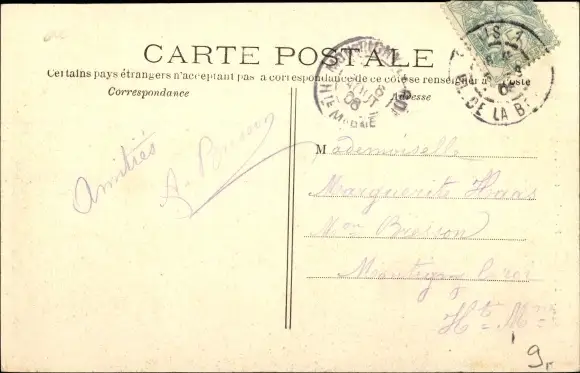 CARTE POSTALE
Certains pays étrangers n'acceptant pas la correspondance de ce côté se renseigner à la Poste
Correspondance
Adresse
Amitiés
A. Bresson
Mademoiselle
Marguerite Haas
Mon Bresson
Montigny le roi
Hte Mne
9,